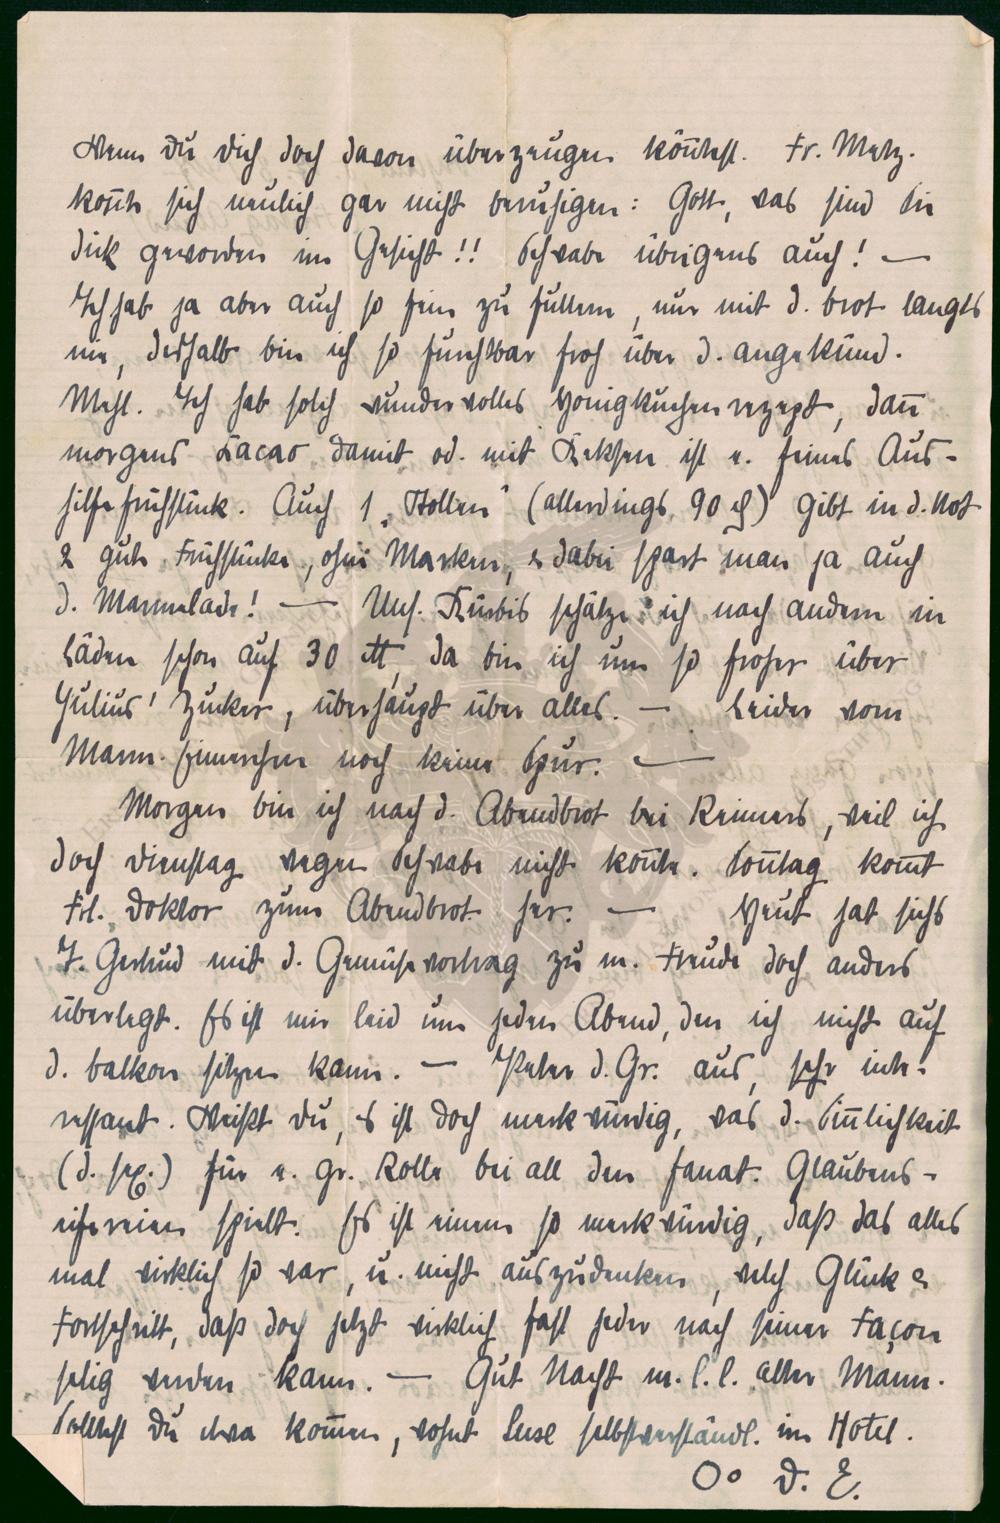 Wenn Du Dich doch davon überzeugen kön̄test. Fr. Metz.
kon̄te sich neulich gar nicht beruhigen: Gott, was sind Sie
dick geworden im Gesicht!! Schwabe übrigens auch! —
Ich hab ja aber auch so fein zu futtern, nur mit d. Brot langts
nie, deshalb bin ich so furchtbar froh über d. angekünd.
Mehl. Ich hab solch wundervolles Honigkuchenrezept, dan̄
morgens Kacao damit od. mit Keksen ist e. feines Aus-
hilfefrühstück. Auch 1 „Stollen" (allerdings 90 ₰) gibt in d. Not
2 gute Frühstücke, ohne Marken, & dabei spart man ja auch
d. Marmelade! — Uns. Kürbis schätze ich nach andern in
Läden schon auf 30 ℔, da bin ich um so froher über
Julius' Zucker, überhaupt über alles. — Leider vom
Mann noch keine Spur. —
Morgen bin ich nach d. Abendbrot bei Reimers, weil ich
doch Dienstag wegen Schwabe nicht kon̄te. Son̄tag kom̄t
Frl. Doktor zum Abendbrot her. — Heut hat sichs
T. Gertrud mit d. Gemüsevortrag zu m. Freude doch anders
überlegt. Es ist mir leid um jeden Abend, den ich nicht auf
d. Balkon sitzen kann. — Peter d. Gr. aus, sehr inte-
ressant. Weißt Du, es ist doch merkwürdig, was d. Sin̄lichkeit
(d. sex.) für e. gr. Rolle bei all den fanat. Glaubens-
eifereien spielt. Es ist einem so merkwürdig, daß das alles
mal wirklich so war, u. nicht auszudenken, welch Glück &
Fortschritt, daß doch jetzt wirklich fast jeder nach seiner Façon
selig werden kann. — Gut Nacht m. l. l. alter Mann.
Solltest Du etwa kom̄en, wohnt Luse selbstverständl. im Hotel.
Oo D. E.